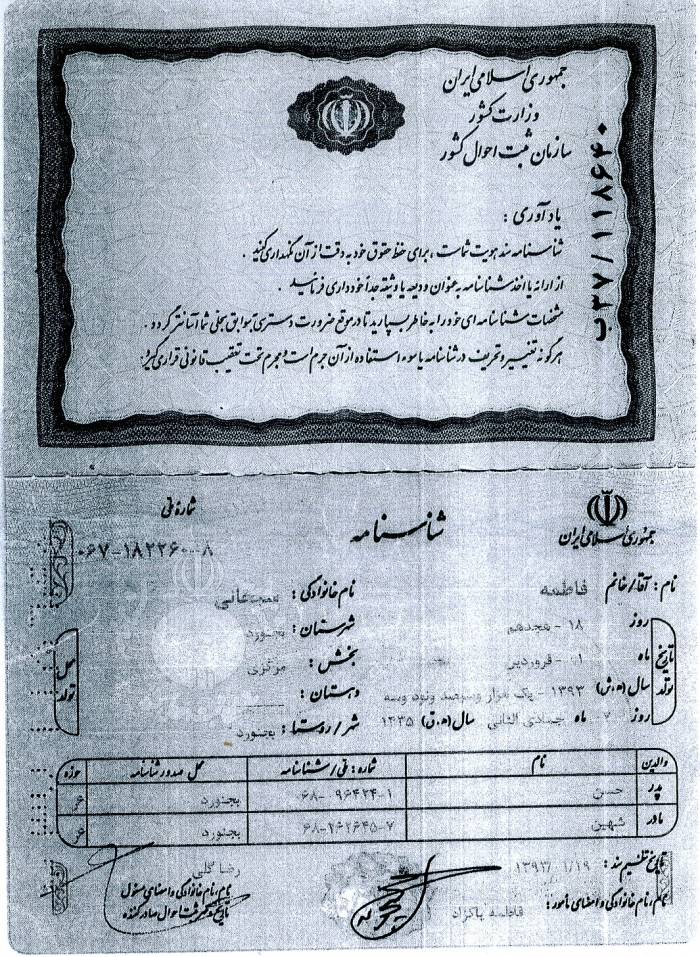 جمهوری اسلامی ایران
وزارت کشور
سازمان ثبت احوال کشور
ب۲۷/۱۱۸۶۴۰
یادآوری :
شناسنامه سند هویت شماست ، برای حفظ حقوق خود به دقت از آن نگهداری کنید .
از ارائه یا اخذ شناسنامه به عنوان ودیعه یا وثیقه جداً خودداری فرمائید .
مشخصات شناسنامه ای خود را به خاطر بسپارید تا در موقع ضرورت دسترسی به سوابق سجلی شما آسانتر گردد .
هرگونه تغییر و تحریف در شناسنامه یا سوء استفاده از آن جرم است و مجرم تحت تعقیب قانونی قرار می گیرد .
جمهوری اسلامی ایران
شناسنامه
شماره ملی
۰۶۷-۱۸۲۲۶۰-۸
نام : آقا/خانم فاطمه
نام خانوادگی :
تاریخ تولد
روز ۱۸ - هجدهم
شهرستان : بجنورد
ماه ۰۱ - فروردین
بخش : مرکزی
سال (ه.ش) ۱۳۹۳ - یک هزار و سیصد و نود و سه
دهستان :
روز ۰۷ ماه جمادی الثانی سال (ه.ق) ۱۴۳۵
شهر/روستا : بجنورد
محل تولد
والدین نام شماره : ملی/شناسنامه محل صدور شناسنامه حوزه
پدر حسن ۰۶۸-۰۹۶۴۲۴-۱ بجنورد
مادر شهین ۰۶۸-۲۶۲۶۴۵-۷ بجنورد
تاریخ تنظیم سند : ۱۳۹۳/۰۱/۱۹
نام، نام خانوادگی و امضای مأمور : فاطمه پاکزاد
رضا گلی
نام، نام خانوادگی و امضای مسئول
تاریخ و مهر ثبت احوال صادر کننده